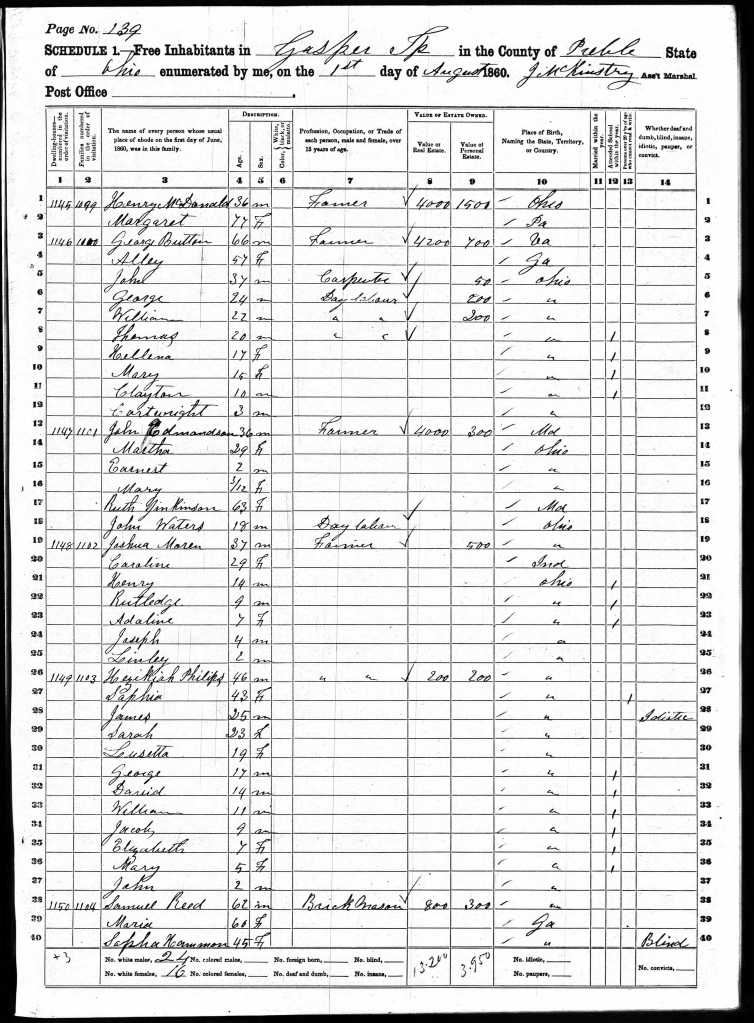 Page No. 139
SCHEDULE 1.—Free Inhabitants in Gasper Tp in the County of Preble State
of Ohio enumerated by me, on the 1st day of August 1860. J McKinstry Ass't Marshal.
Post Office
Dwelling-houses—numbered in the order of visitation. Families numbered in the order of visitation. The name of every person whose usual place of abode on the first day of June, 1860, was in this family. DESCRIPTION. Age. Sex. Color, White, black, or mulatto. Profession, Occupation, or Trade of each person, male and female, over 15 years of age. VALUE OF ESTATE OWNED. Value of Real Estate. Value of Personal Estate. Place of Birth, Naming the State, Territory, or Country. Married within the year. Attended School within the year. Whether deaf and dumb, blind, insane, idiotic, pauper, or convict.
1 2 3 4 5 6 7 8 9 10 11 12 13 14
1 1145 1099 Henry McDonald 36 m Farmer 4000 1500 Ohio 1
2 Margaret 77 F Pa 2
3 1146 1100 George Button 66 m Farmer 4200 700 Va 3
4 Alley 57 F Ga 4
5 John 37 m Carpenter 50 Ohio 5
6 George 24 m Day labour 200 " 6
7 William 22 m " " 200 " 7
8 Thomas 20 m " " " 1 8
9 Hellena 17 F " 1 9
10 Mary 15 F " 1 10
11 Clayton 10 m " 1 11
12 Cartwright 3 m " 12
13 1147 1101 John Edmandson 36 m Farmer 4000 300 Md 13
14 Martha 29 F Ohio 14
15 Earnest 2 m " 15
16 Mary 3/12 F " 16
17 Ruth 63 F Md 17
18 John Waters 18 m Day labour Ohio 18
19 1148 1102 Joshua Moren 37 m Farmer 500 " 19
20 Caroline 29 F Ind 20
21 Henry 14 m Ohio 1 21
22 Rutledge 9 m " 1 22
23 Adaline 7 F " 1 23
24 Joseph 4 m " 24
25 Linley 2 m " 25
26 1149 1103 Hezikiah Philips 46 m " " 200 200 " 26
27 Saphia 43 F " 1 27
28 James 25 m " Idiotic 28
29 Sarah 23 F " 29
30 Lusetta 19 F " 30
31 George 17 m " 1 31
32 David 14 m " 1 32
33 William 11 m " 1 33
34 Jacob 9 m " 1 34
35 Elizabeth 7 F " 1 35
36 Mary 5 F " 1 36
37 John 2 m " 37
38 1150 1104 Samuel Reed 62 m Brick Mason 800 300 " 38
39 Maria 60 F Ga 39
40 Sapha Hammon 45 F " Blind 40
+3 No. white males, 24 No. colored males, No. foreign born, No. blind, 13200 3.950 No. idiotic, No. convicts,
No. white females, 16 No. colored females, No. deaf and dumb, No. insane, No. paupers,